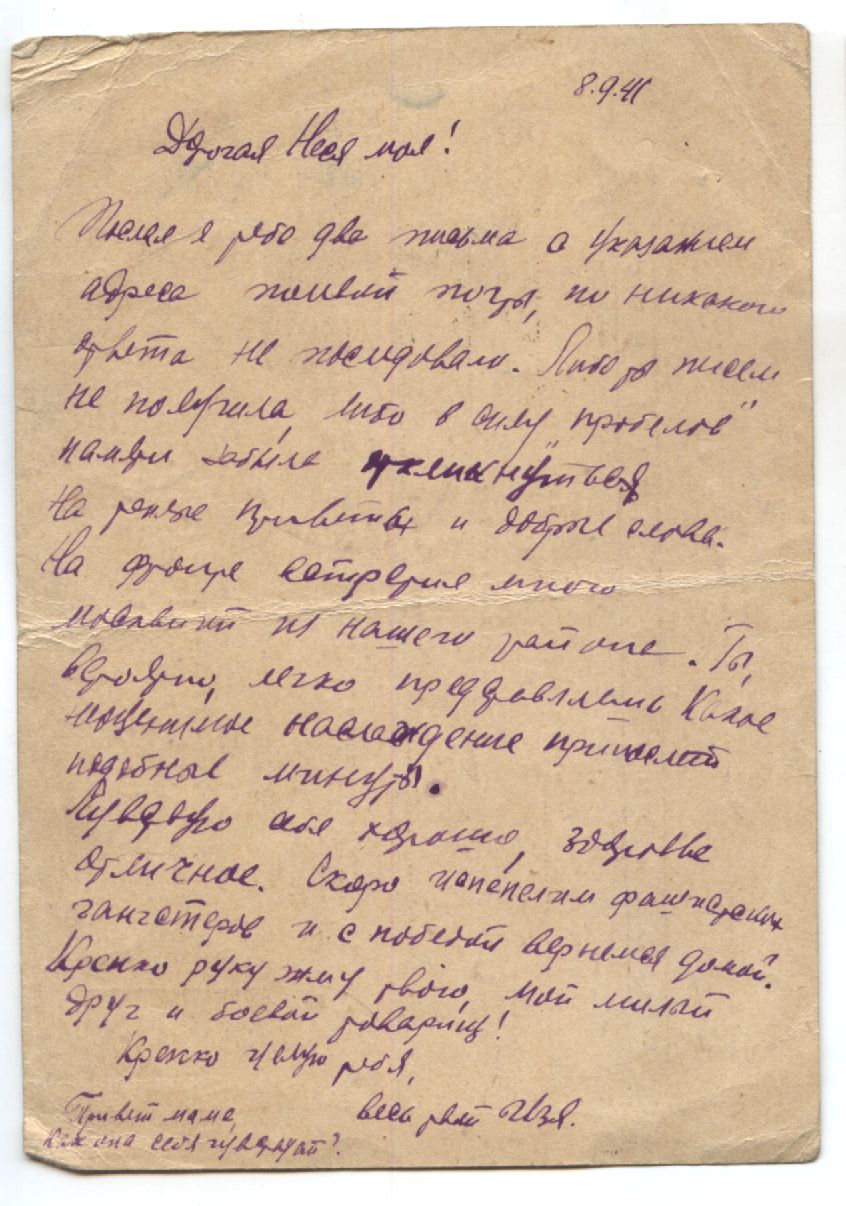 8.9.41
Дорогая Неся моя!
Послал я тебе два письма с указанием
адреса полевой почты, но никакого
ответа не последовало. Либо ты писем
не получила, либо в силу "пробелов"
памяти забыла откликнуться
на теплые приветы и добрые слова.
На фронте встретил много
москвичей из нашего района. Ты,
вероятно, легко представляешь какое
неоценимое наслаждение приносят
подобные минуты.
Чувствую себя хорошо, здоровье
отличное. Скоро испепелим фашистских
гангстеров и с победой вернемся домой.
Крепко руку жму твою, мой милый
друг и боевой товарищ!
Крепко целую тебя,
весь твой Изя.
Привет маме,
как она себя чувствует?